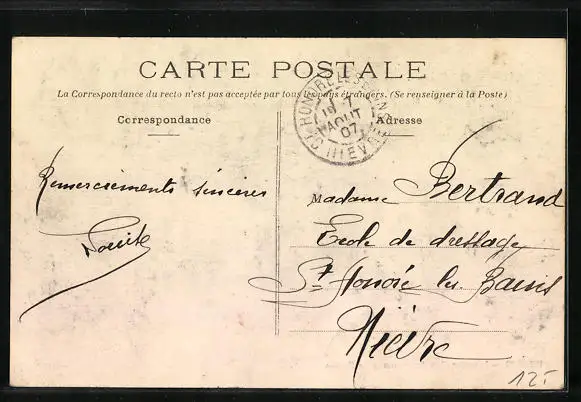 CARTE POSTALE
La Correspondance du recto n'est pas acceptée par tous les pays étrangers. (Se renseigner à la Poste)
Correspondance
Adresse
AOUT
07
NIEVRE
Remerciements sincères
Madame Bertrand
Ecole de dressage
St Honoré les Bains
Nièvre
12.-